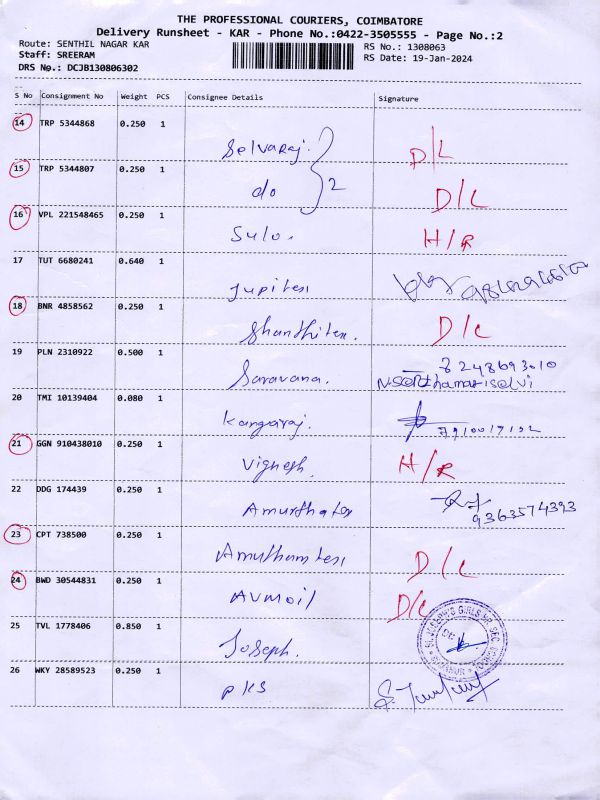 THE PROFESSIONAL COURIERS, COIMBATORE
Delivery Runsheet - KAR - Phone No.:0422-3505555 - Page No.:2
Route: SENTHIL NAGAR KAR RS No.: 1308063
Staff: SREERAM RS Date: 19-Jan-2024
DRS No.: DCJB130806302
S No Consignment No Weight PCS Consignee Details Signature
14 TRP 5344868 0.250 1 Selvaraj. D/L
15 TRP 5344807 0.250 1 do 2 D/L
16 VPL 221548465 0.250 1 Sulo. H/R
17 TUT 6680241 0.640 1 Jupiter
18 BNR 4858562 0.250 1 Shanthitex. D/L
19 PLN 2310922 0.500 1 Saravana. 8248693010
20 TMI 10139404 0.080 1 Kangaraj.
21 GGN 910438010 0.250 1 Vignesh. H/R
22 DDG 174439 0.250 1 9363574393
23 CPT 738500 0.250 1 D/L
24 BWD 30544831 0.250 1 AVMOIL D/L
25 TVL 1778406 0.850 1 Joseph.
26 WKY 28589523 0.250 1 PKS